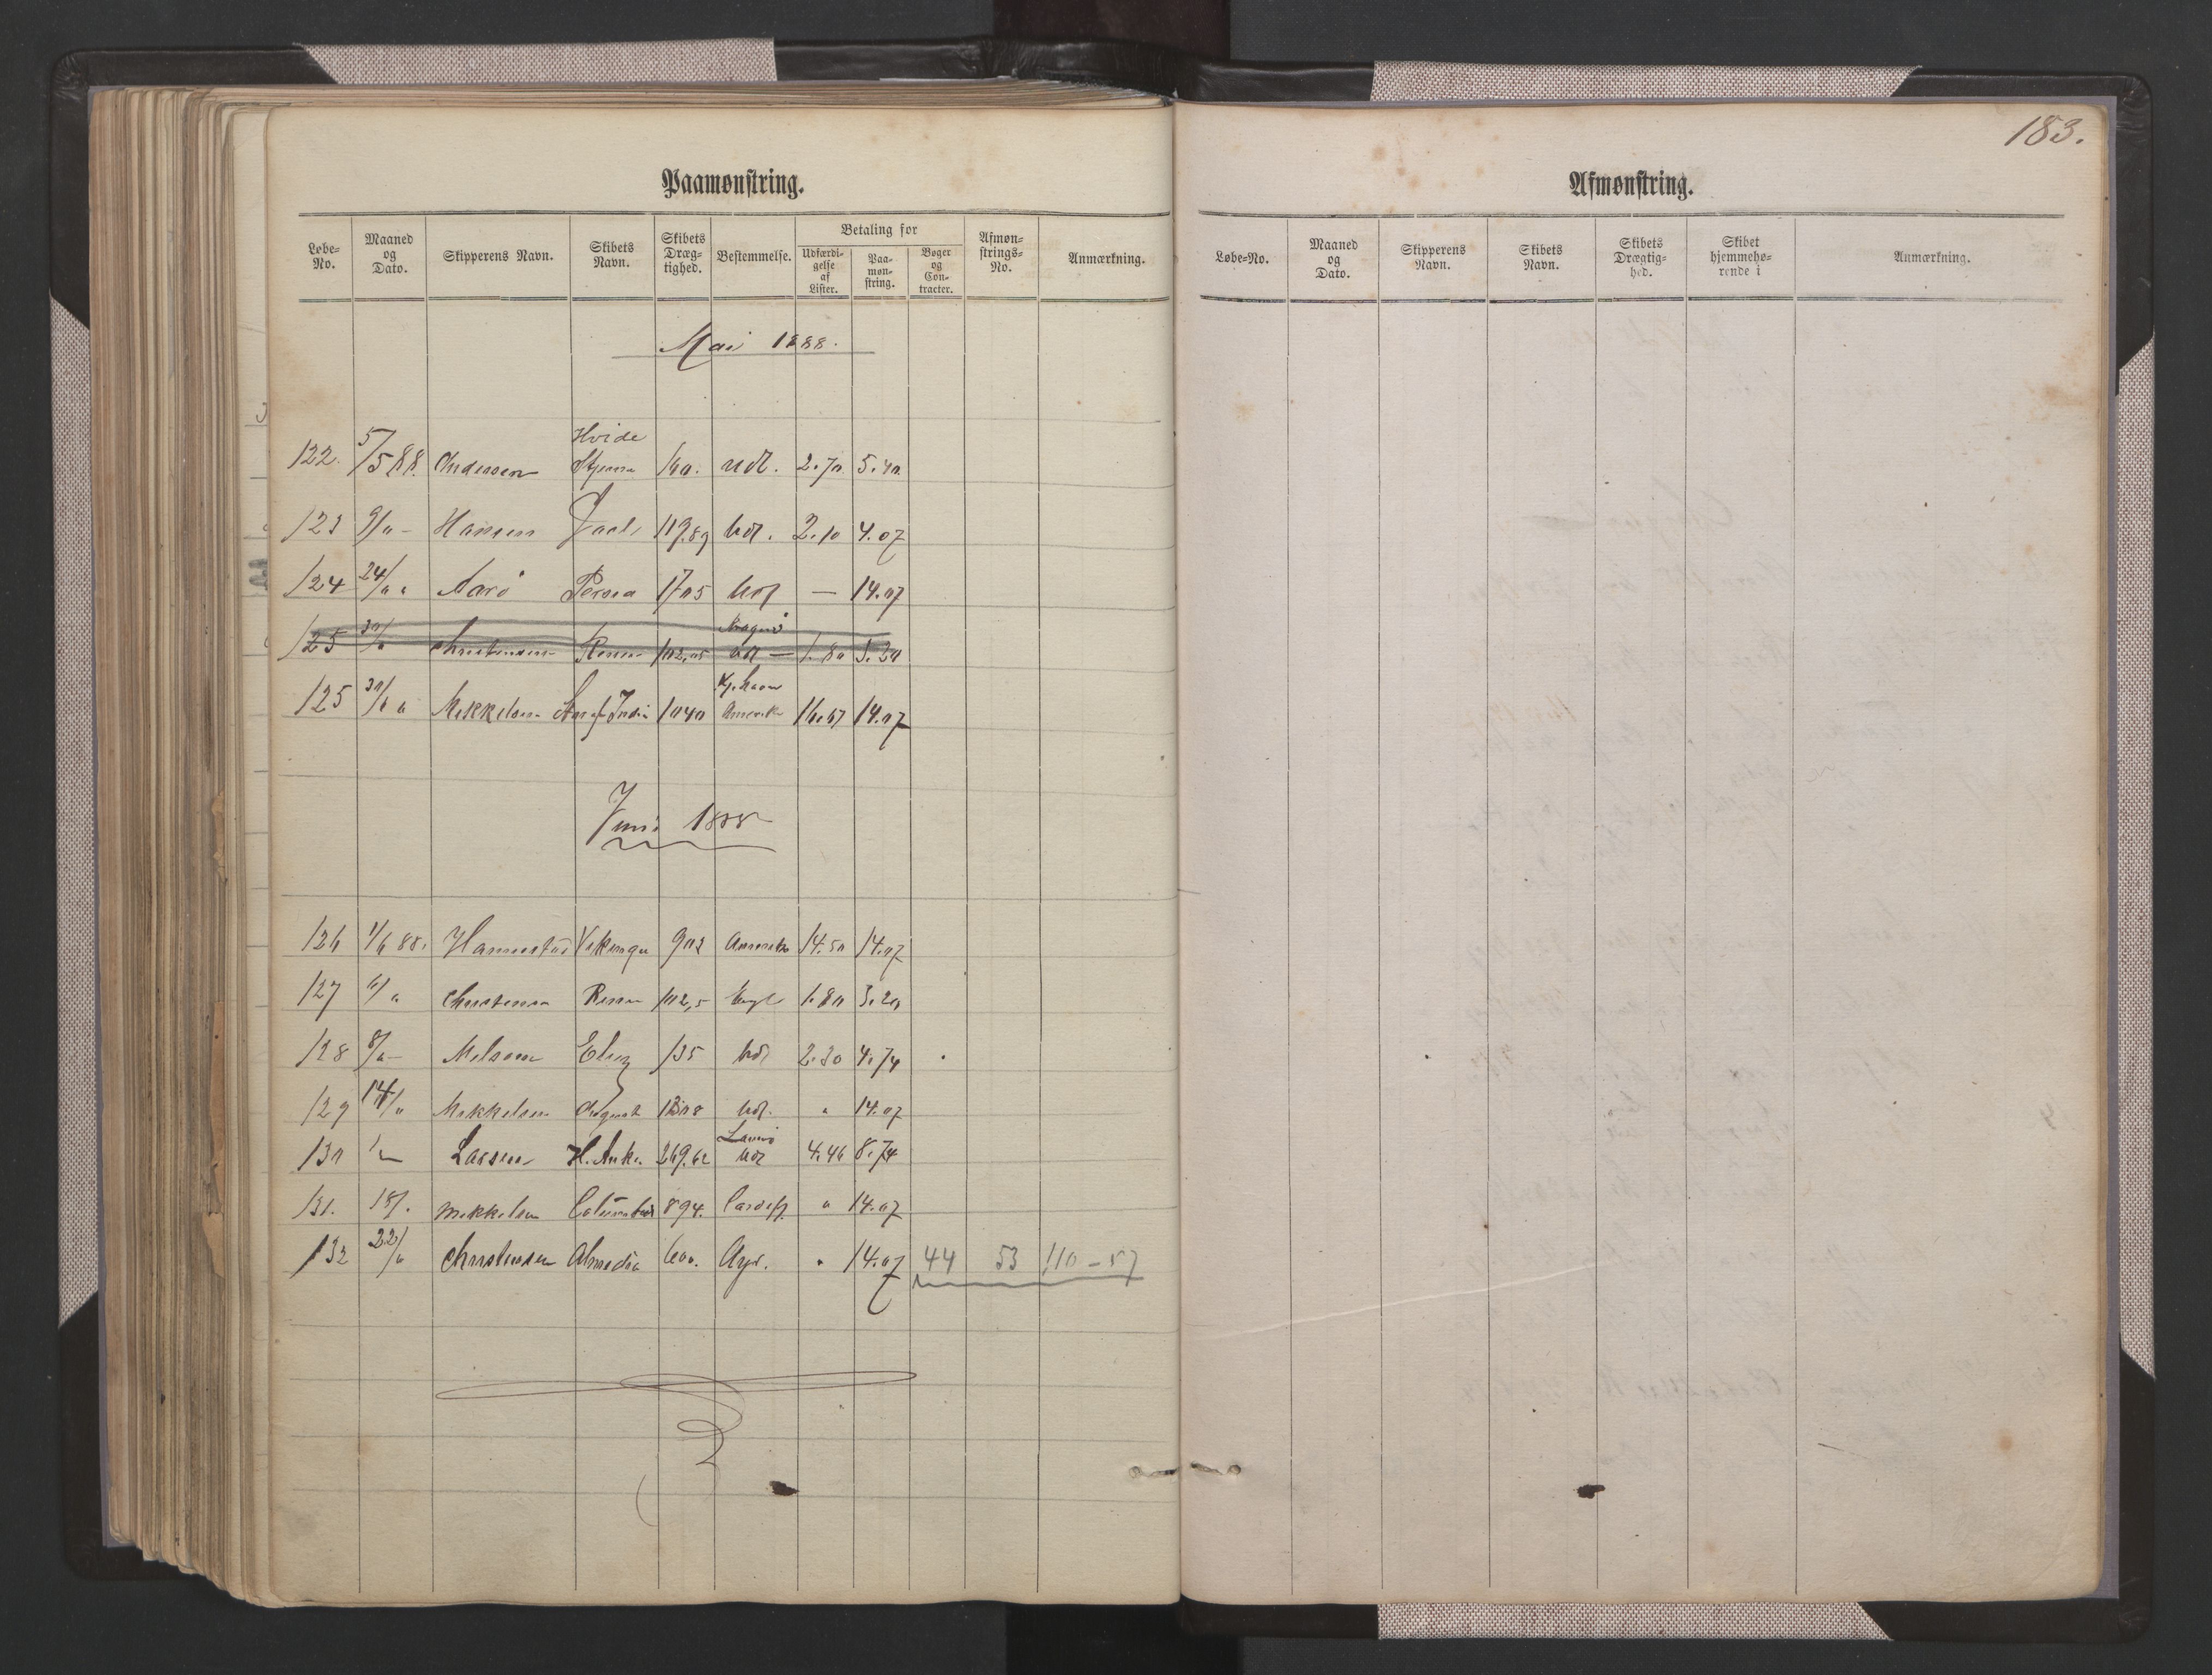 183.
Paamønstring.
Løbe-No. Maaned og Dato. Skipperens Navn. Skibets Navn. Skibets Dræg-tighed. Bestemmelse. Betaling for Udfærdi-gelse af Lister. Paa-møn-string. Bøger og Con-tracter. Afmøn-strings-No. Anmærkning.
Mai 1888.
122. 5/5 88. Andersen Hvide Stjerne 160. Udl. 2.70 5.40
123 9/" - Hansen 119.89 Udl. 2.10 4.07
124 24/" " Aarø Persia 1705 Udl — 14.07
125 30/" Christensen 102,05 Udl — 1.80 3.20
125 30/" " Mikkelsen 1040 Amerika 16.67 14.07
Juni 1888
126 1/6 88. Hannestad Vikingen 903 Amerika 14.50 14.07
127 6/" Christensen 102,5 Engl 1.80 3.20
128 8/" - Melsom Elise 135 Udl 2.30 4.74
129 14/" Mikkelsen August 1308 Udl. " 14.07
130 Larsen H. Anke. 269.62 Udl 4.46 8.74
131. 18/. Mikkelsen Columbus 894. Cardiff " 14.07
132 22/" Christensen Almedia 600. Ayr. " 14.07 44 53 110 - 57
Afmønstring.
Løbe-No. Maaned og Dato. Skipperens Navn. Skibets Navn. Skibets Drægtig-hed. Skibet hjemmehø-rende i Anmærkning.